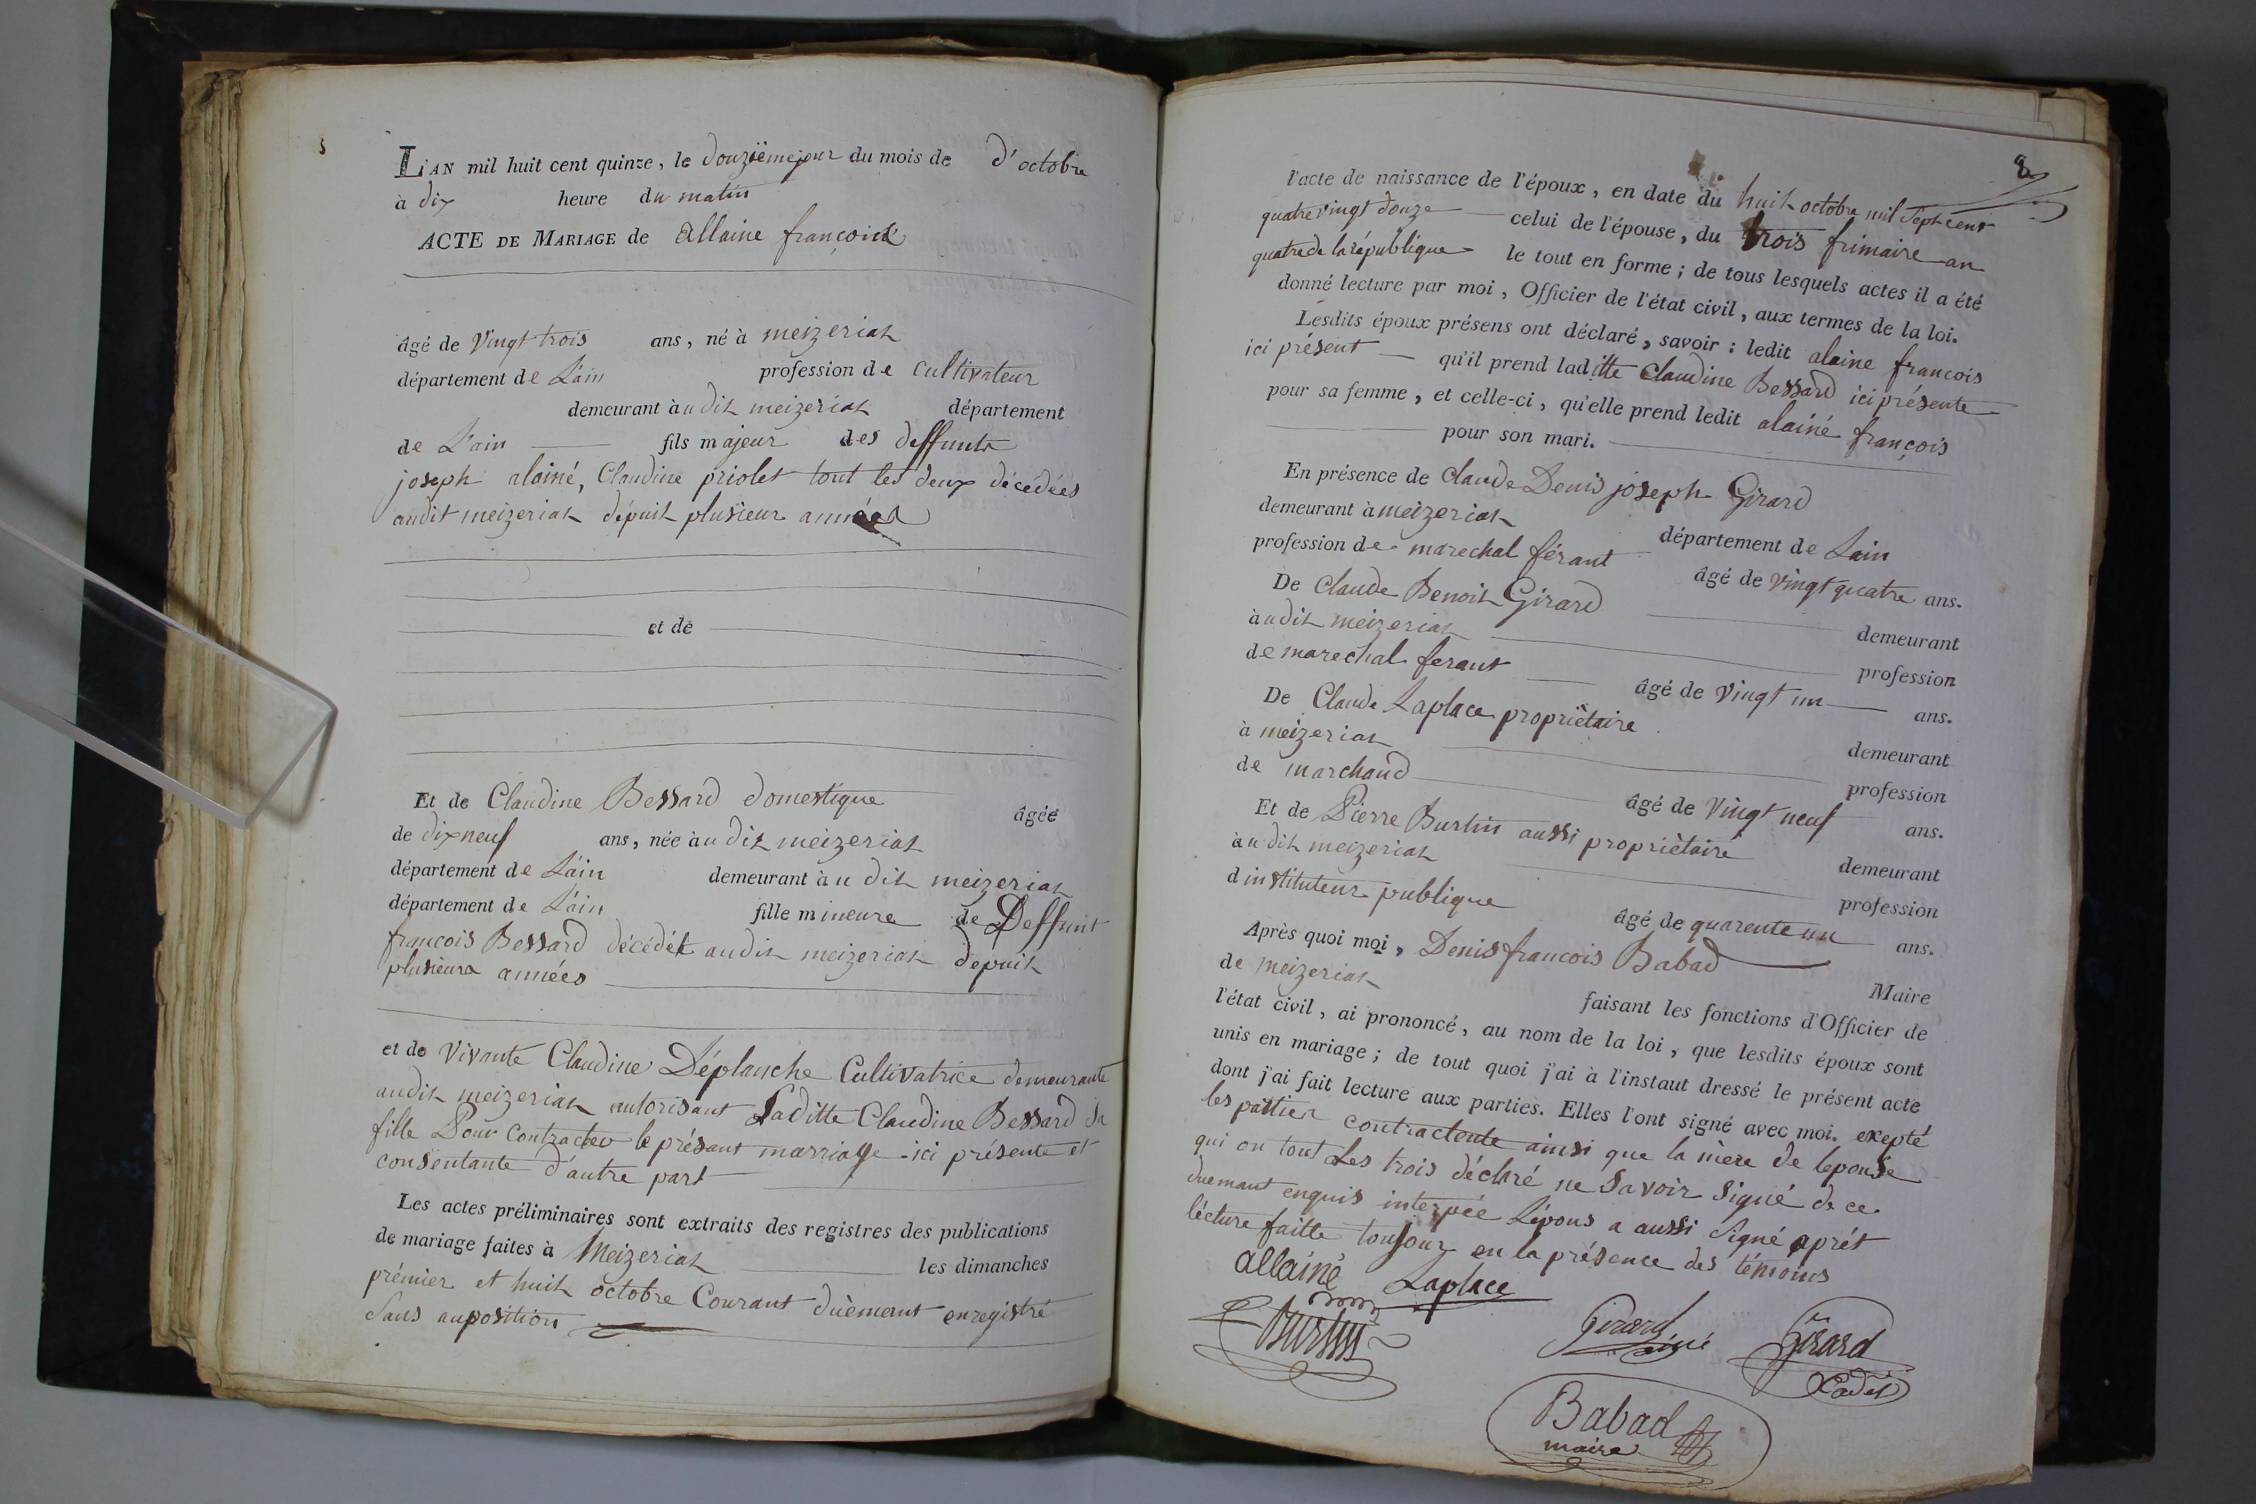 L'AN mil huit cent quinze, le douzième jour du mois de d'octobre
à dix heure du matin
ACTE DE MARIAGE de allaine françois
âgé de vingt trois ans, né à meizeriat
département de L'ain profession de cultivateur
demeurant à udit meizeriat département
de L'ain fils majeur des deffunts
joseph alainé, Claudine priolet tout les deux décédées
audit meizeriat dépuit plusieur années
et de
Et de Claudine Bessard domestique âgée
de dixneuf ans, née à udit meizeriat
département de L'ain demeurant à u dit meizeriat
département de L'ain fille mineure de Deffunt
françois Bessard décédét audit meizeriat depuit
plusieurs années
et de vivante Claudine Déplanche Cultivatrice demeurante
audit meizeriat autorisant Laditte Claudine Bessard sa
fille Pour contracter le présant marriage ici présente et
consentante d'autre part
Les actes préliminaires sont extraits des registres des publications
de mariage faites à Meizeriat les dimanches
prémier et huit octobre Courant duèmant enregistré
Sans auposition
8
l'acte de naissance de l'époux, en date du huit octobre mil Sept cent
quatre vingt douze celui de l'épouse, du trois frimaire an
quatre de la république le tout en forme; de tous lesquels actes il a été
donné lecture par moi, Officier de l'état civil, aux termes de la loi.
Lesdits époux présens ont déclaré, savoir: ledit alaine francois
ici présent qu'il prend laditte Claudine Bessard ici présente
pour sa femme, et celle-ci, qu'elle prend ledit alainé françois
pour son mari.
En présence de Claude Denis joseph Girard
demeurant à meizeriat département de Lain
profession de marechal férant âgé de vingt quatre ans.
De Claude Benoit Girard demeurant
à udit meizeriat profession
de marechal ferant âgé de vingt un ans.
De Claude Laplace propriètaire demeurant
à meizeriat profession
de marchand âgé de vingt neuf ans.
Et de Pierre Burtin aussi propriètaire demeurant
à udit meizeriat profession
d instituteur publique âgé de quarente un ans.
Après quoi moi, Denis francois Babad Maire
de meizeriat faisant les fonctions d'Officier de
l'état civil, ai prononcé, au nom de la loi, que lesdits époux sont
unis en mariage; de tout quoi j'ai à l'instaut dressé le présent acte
dont j'ai fait lecture aux parties. Elles l'ont signé avec moi. exepté
les partier contractente ainsi que la mère de lepouse
qui on tout Les trois déclaré ne Savoir Signé de ce
duemant enquis interpée Lépous a aussi Signé aprét
lécture faitte toujour en la présence des témoins
allainé Laplace
Burtin Girard ainé Girard Cadet
Babad
maire